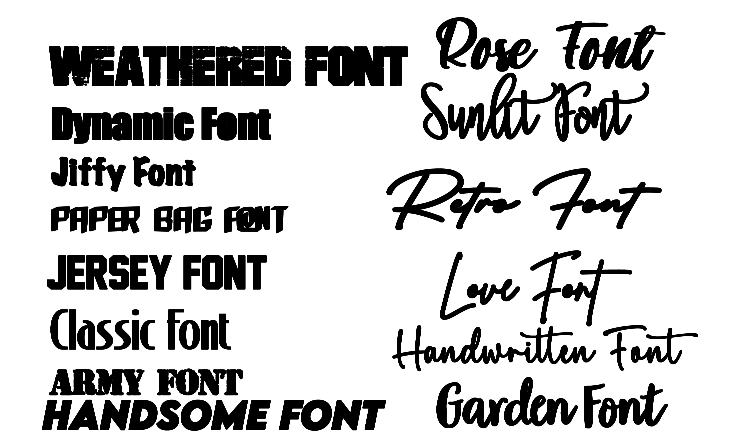 WEATHERED FONT
Dynamic Font
Jiffy Font
PAPER BAG FONT
JERSEY FONT
Classic Font
ARMY FONT
HANDSOME FONT
Rose Font
Sunlit Font
Retro Font
Love Font
Handwritten Font
Garden Font